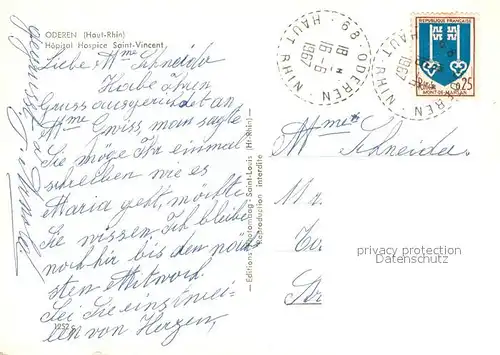 ODEREN (Haut-Rhin)
Hôpital Hospice Saint-Vincent
Liebe Mme Schneider
Habe Ihren
Gruss ausgerichtet an
Mme Gwiss man sagte
Sie möge Ihr einmal
schreiben wie es
Maria geht, möchte
Sie wissen. Ich bleibe
noch hir bis den näch
sten Mittwoch.
Sei Sie einstwei
len von Herzen,
gegrüsst
1252
Editions Photombag - Saint-Louis (Ht-Rhin)
Reproduction interdite
ODEREN - HAUT-RHIN
68
18 H
16-6
1967
REPUBLIQUE FRANÇAISE
0,25
MONT-DE-MARSAN
Schneider
privacy protection